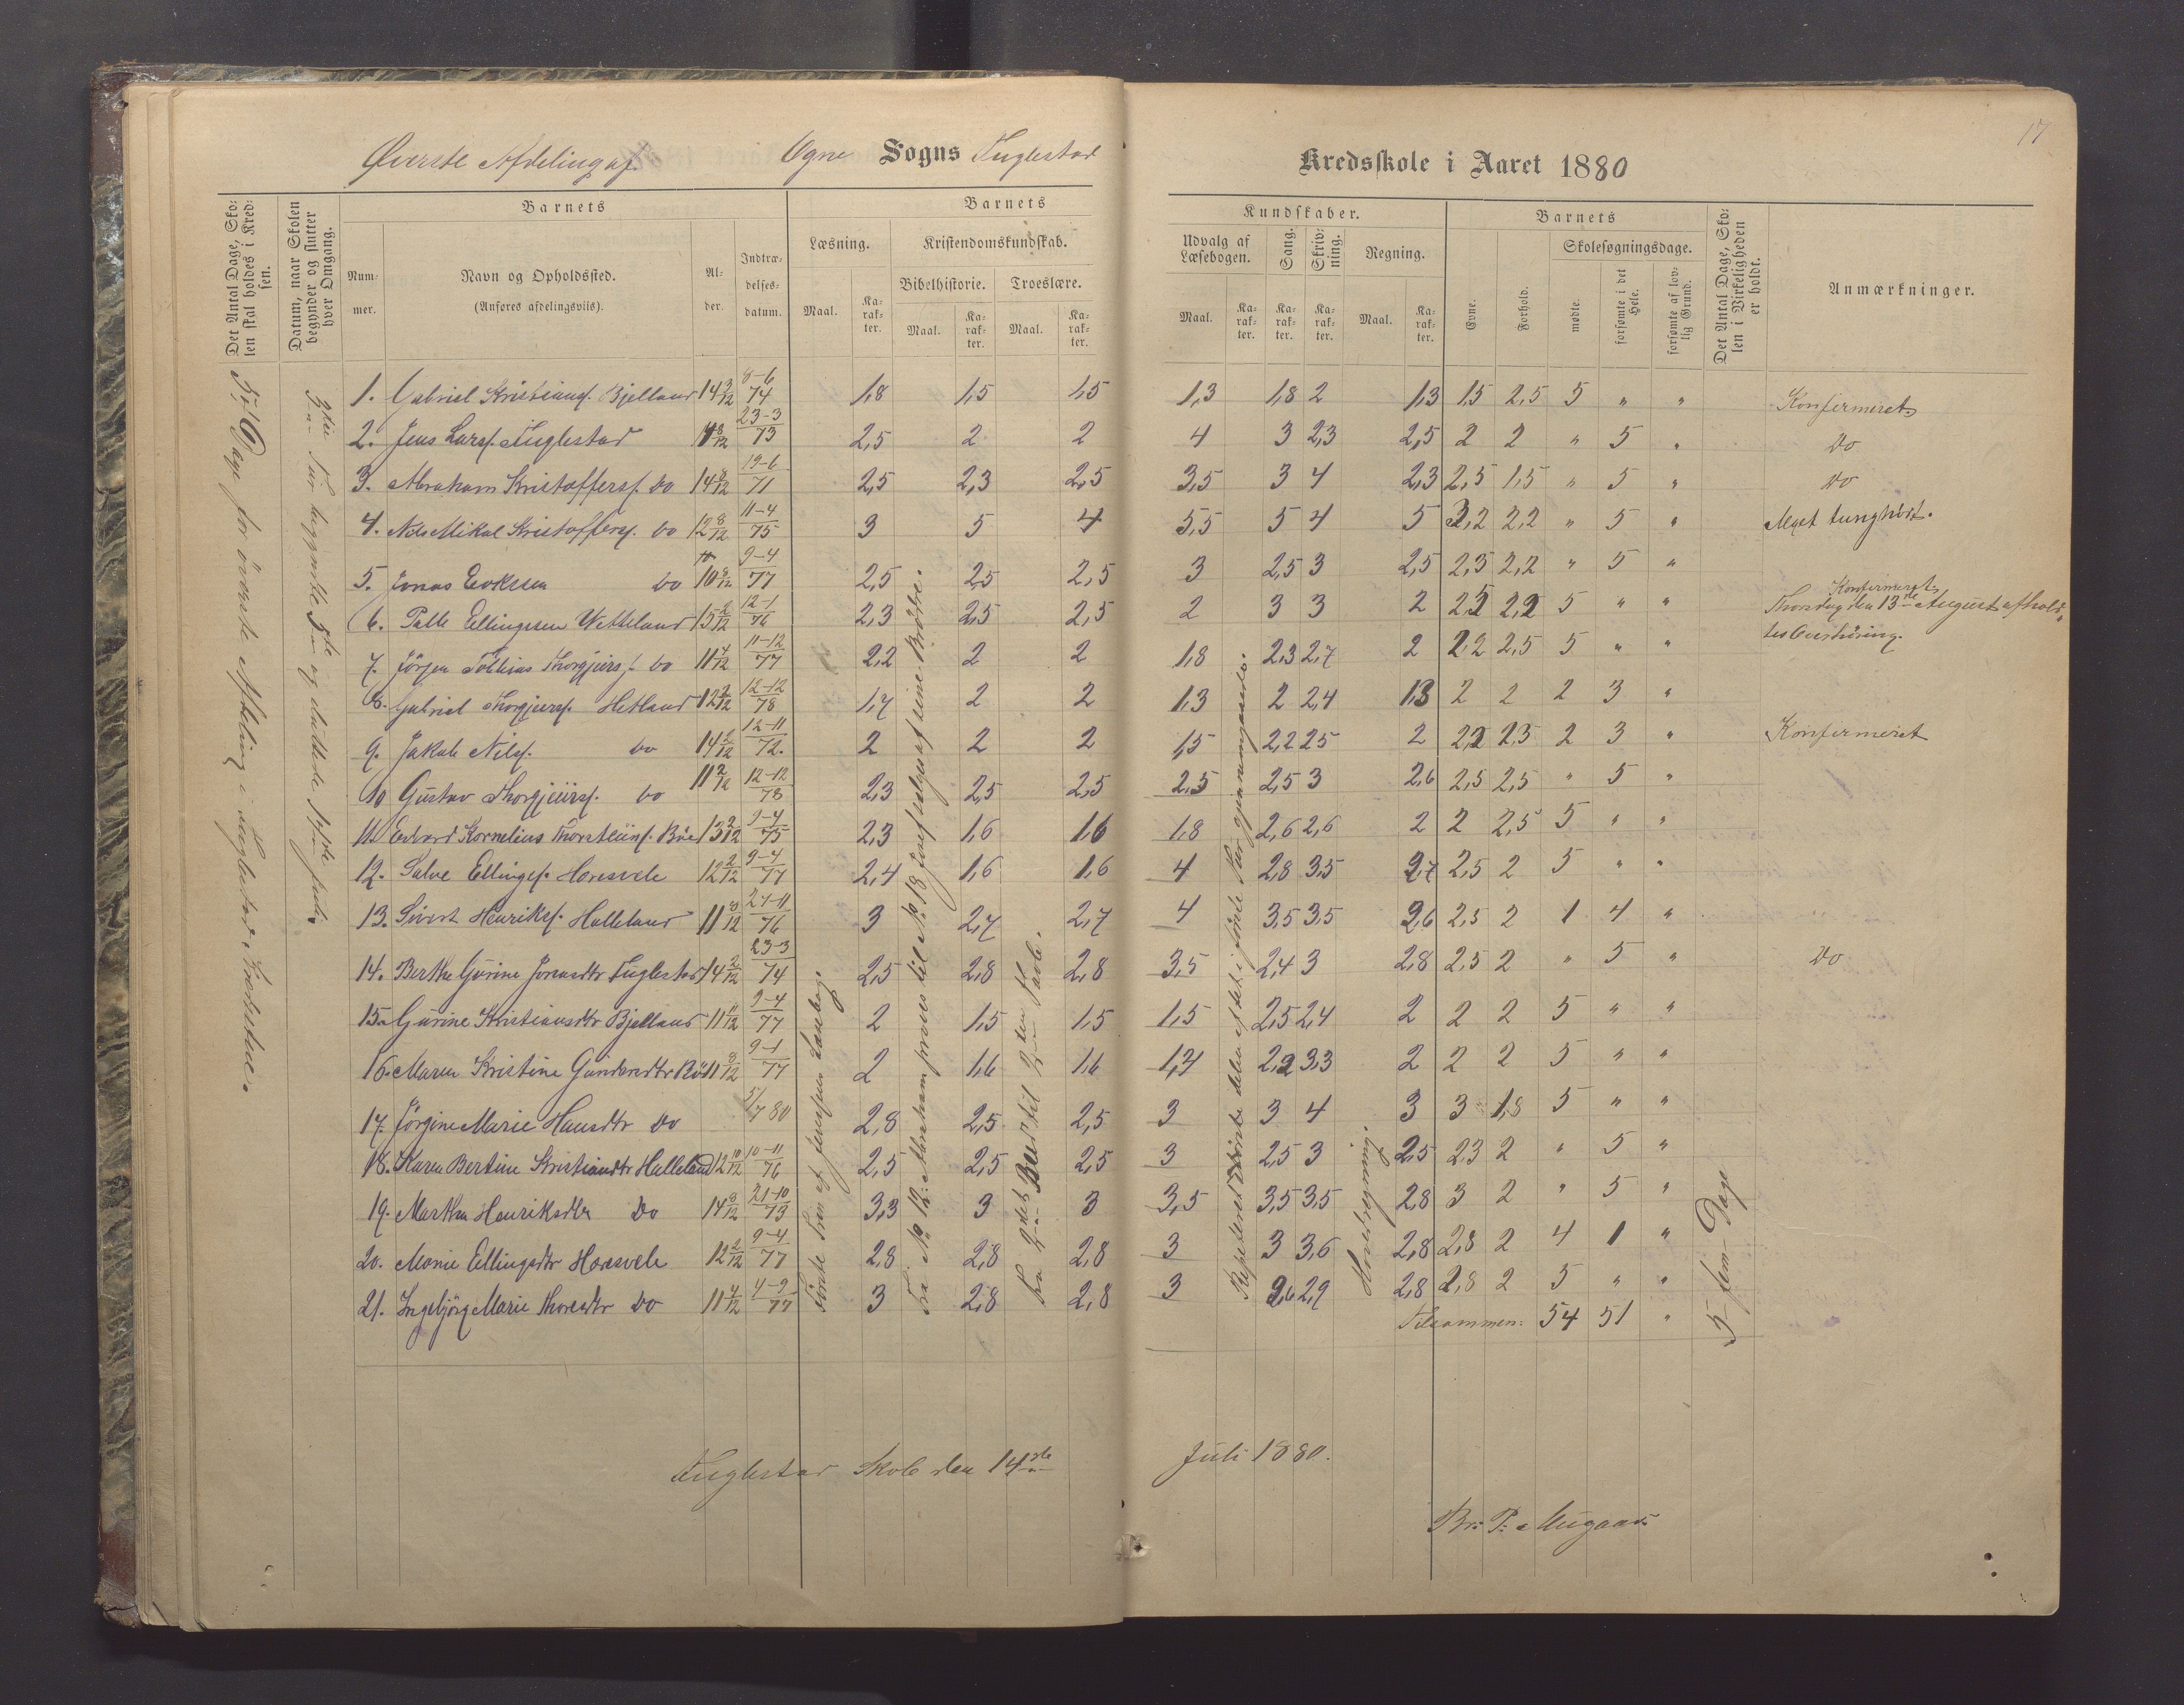 17
Øverste Afdeling af Ogne Sogns Fuglestad Kredsskole i Aaret 1880
Det Antal Dage, Skolen skal holdes i Kredsen.
Datum, naar Skolen begynder og slutter hver Omgang.
Barnets
Nummer.
Navn og Opholdssted.
(Anføres afdelingsviis).
Alder.
Indtrædelsesdatum.
Barnets Kundskaber.
Læsning. Kristendomskundskab. Udvalg af Læsebogen. Sang. Skrivning. Regning.
Bibelhistorie. Troeslære.
Maal. Karakter. Maal. Karakter. Maal. Karakter. Maal. Karakter. Karakter. Karakter. Maal. Karakter.
Barnets
Evne. Forhold. Skolesøgningsdage.
mødte. forsømte i det Hele. forsømte af lovlig Grund.
Det Antal Dage, Skolen i Virkeligheden er holdt.
Anmærkninger.
Dage for øverste Afdeling i Fuglestad
3die Tur begyndte 5te og sluttede 14de Juli.
1. Gabriel Kristians. Bjelland 14 3/12 8-6 74 1,8 1,5 1,5 1,3 1,8 2 1,3 1,5 2,5 5 " " Konfirmeret
2. Jens Lars. Fuglestad 14 8/12 23-3 73 2,5 2 2 4 3 2,3 2,5 2 2 " 5 " Do
3. Abraham Kristoffers. do 14 8/12 19-6 71 2,5 2,3 2,5 3,5 3 4 2,3 2,5 1,5 " 5 " Do
4. Nils Mikal Kristoffers. do 12 8/12 11-4 75 3 5 4 5,5 5 4 5 3,2 2,2 " 5 " Meget tunghørt.
5. Jonas do 10 8/12 9-4 77 2,5 2,5 2,5 3 2,5 3 2,5 2,3 2,2 " 5 "
6. Palle Ellingsen Wetteland 15 2/12 12-1 76 2,3 2,5 2,5 2 3 3 2 2,2 2,2 5 " " Konfirmeret.
Thorsdag den 13de August afholdtes Overhøring.
7. Jörgen Tollias Thorgjeirs. do 11 4/12 11-12 77 2,2 2 2 1,8 2,3 2,7 2 2,2 2,5 5 " "
8. Gabriel Thorgjeirs. Hetland 12 2/12 12-12 78 1,7 2 2 1,3 2 2,4 1,3 2 2 2 3 "
9. Jakob Nils. do 14 2/12 12-11 72. 2 2 2 1,5 2,2 2,5 2 2,2 2,3 2 3 " Konfirmeret
10 Gustav Thorgjeirs. do 11 2/12 12-12 78 2,3 2,5 2,5 2,5 2,5 3 2,6 2,5 2,5 " 5 "
11. Edvard Kornelius Thorsteins. Böe 13 2/12 9-4 75 2,3 1,6 1,6 1,8 2,6 2,6 2 2 2,5 5 " "
12. Salve Ellings. Haresvele 12 2/12 9-4 77 2,4 1,6 1,6 4 2,8 3,5 2,7 2,5 2 5 " "
13. Sivert Henriks. Halleland 11 8/12 21-11 76 3 2,7 2,7 4 3,5 3,5 2,6 2,5 2 1 4 "
14. Berthe Gurine Jonasdtr Fuglestad 14 2/12 23-3 74 2,5 2,8 2,8 3,5 2,4 3 2,8 2,5 2 " 5 " Do
15. Gurine Kristiansdtr Bjelland 11 11/12 9-4 77 2 1,5 1,5 1,5 2,5 2,4 2 2 2 5 " "
16. Maren Kristine Gundersdtr Böe 11 8/12 9-1 77 2 1,6 1,6 1,7 2,2 3,3 2 2 2 5 " "
17. Jörgine Marie Hansdtr Do 5/7 80 2,8 2,5 2,5 3 3 4 3 3 1,8 5 " "
18. Karen Bertine Kristiandtr Halleland 12 10/12 10-11 76 2,5 2,5 2,5 3 2,5 3 2,5 2,3 2 " 5 "
19. Marthe Henriksdtr Do 14 8/12 21-10 73 3,3 3 3 3,5 3,5 3,5 2,8 3 2 " 5 "
20. Marie Ellingsdtr Haresvele 12 2/12 9-4 77 2,8 2,8 2,8 3 3 3,6 2,8 2,8 2 4 1 "
21. Ingebjörg Marie Thoresdtr Do 11 4/12 4-9 77 3 2,8 2,8 3 2,6 2,9 2,8 2,8 2 5 " "
Tilsammen: 54 51 "
Fra No 12: Abraham prøves til No 18 Josef sælges af sine Brødre.
Fra 2det Bud til 2den Part.
Hovedregning.
5 - fem - Dage
Fuglestad Skole den 14de Juli 1880.
Br. P. Augaard